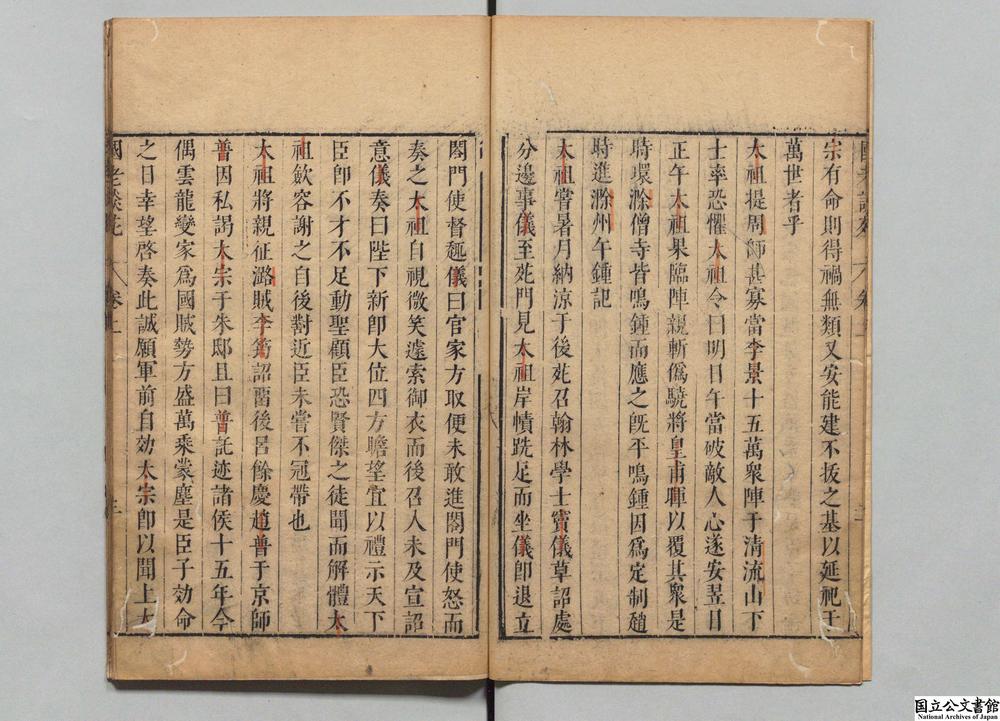 宗有命則得禍無類又安能建不拔之基以延祀于
萬世者乎
太祖提周師甚寡當李景十五萬衆陣于清流山下
士卒恐懼太祖令曰明日午當破敵人心遂安翌日
正午太祖果臨陣親斬僞驍將皇甫暉以覆其衆是
時環滁僧寺皆鳴鍾而應之旣平鳴鍾因爲定制趙
時進滁州午鍾記
太祖嘗暑月納涼于後苑召翰林學士竇儀草詔處
分邊事儀至苑門見太祖岸幘跣足而坐儀卽退立
閤門使督趣儀曰官家方取便未敢進閤門使怒而
奏之太祖自視微笑遽索御衣而後召入未及宣詔
意儀奏曰陛下新卽大位四方瞻望宜以禮示天下
臣卽不才不足動聖顧臣恐賢傑之徒聞而解體太
祖歛容謝之自後對近臣未嘗不冠帶也
太祖將親征潞賊李筠詔留後呂餘慶趙普于京師
普因私謁太宗于朱邸且曰普託迹諸侯十五年今
偶雲龍變家爲國賊勢方盛萬乘蒙塵是臣子効命
之日幸望啓奏此誠願軍前自効太宗卽以聞上大
國老談苑
卷上
三
国立公文書館
National Archives of Japan